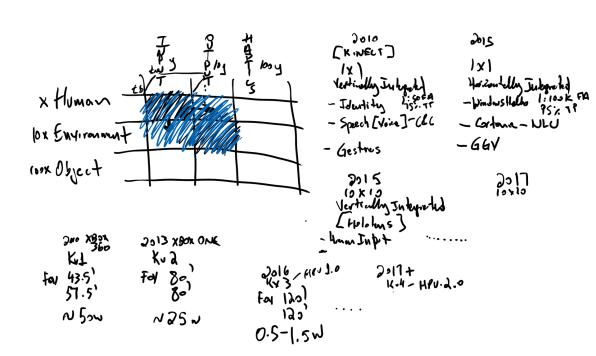 INPUT
OUTPUT
HAPTICS
y
10y
100y
x Human
10x Environment
100x Object
2010
[KINECT]
1x1
Vertically Integrated
- Identity
- Speech [Voice] - C&C
- Gestures
2015
1x1
Horizontally Integrated
- Windows Hello 1:100K FA
95% TP
- Cortana - NLU
- GGV
2015
10x10
Vertically Integrated
[Hololens]
- Human Input
........
2017
10x10
XBOX
360
Kv1
Fov 43.5'
57.5'
~50w
2013 XBOX ONE
Kv2
Fov 80'
80'
~25w
2016
Kv3 / HPU 1.0
Fov 120'
120'
0.5-1.5W
....
2017+
Kv4 - HPU 2.0